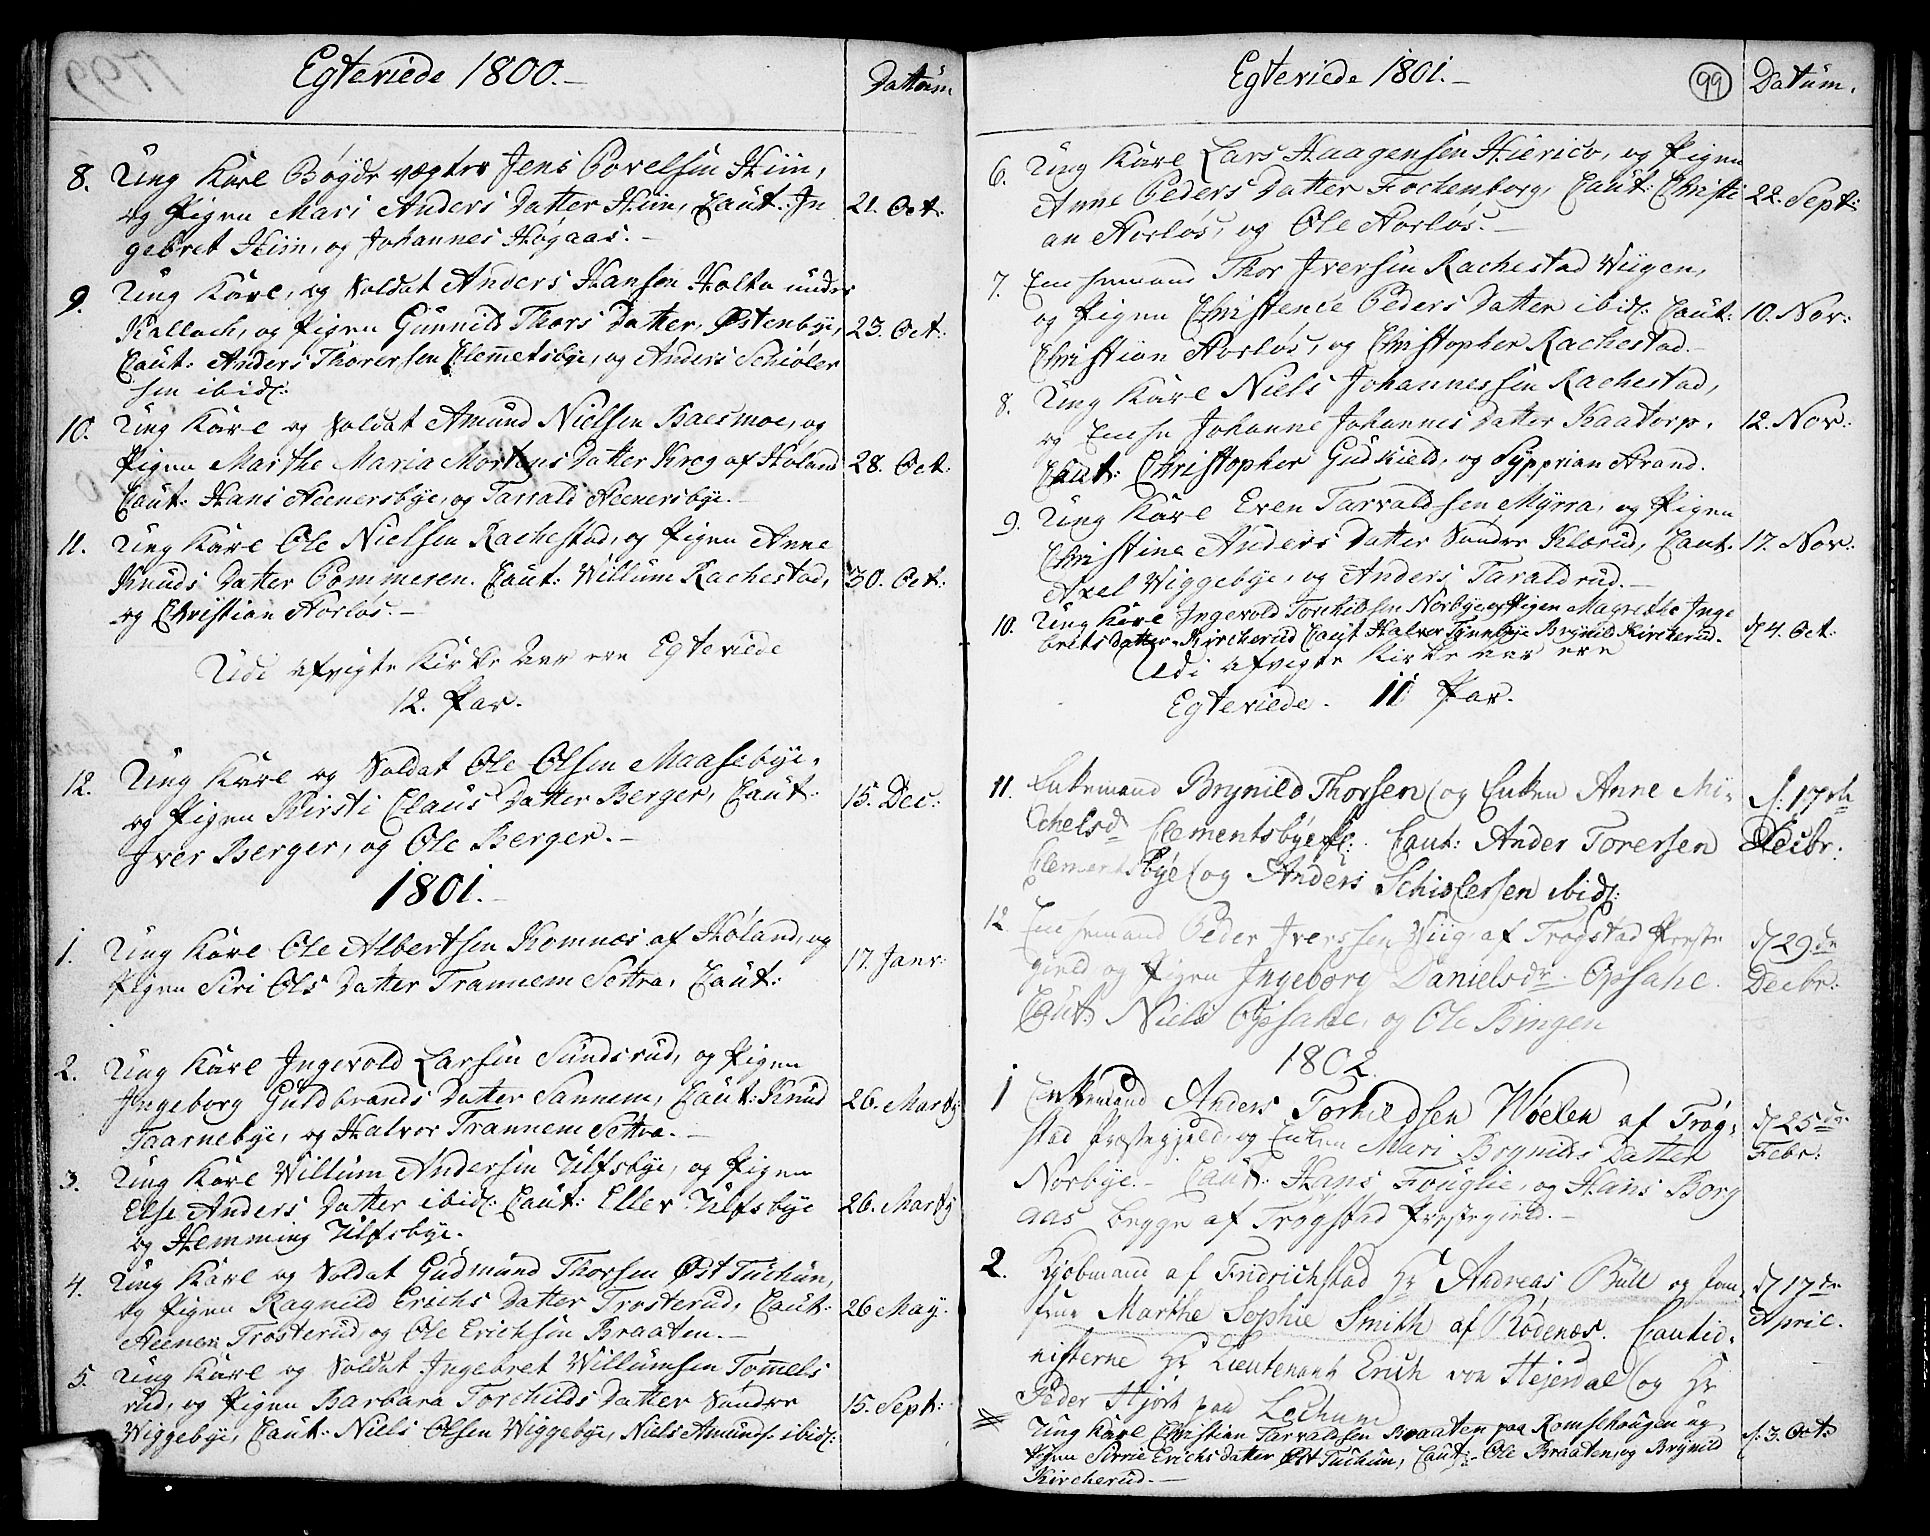 Egteviede 1800.-
Dattum
8. Ung Karl Bøgde vægter Jens Povelsen Hiin,
og Pigen Mari Anders Datter Hiin, Caut: In
21. Oct:
gebret Hiin, og Johannes Høgaas.-
9. Ung Karl, og Soldat Anders Hansen Holta under
Kallach, og Pigen Gunnild Thors Datter Østenbye,
23. Oct:
Caut: Anders Thorersen Clemmetsbye, og Anders Schiøler
sen ibid:
10. Ung Karl og Soldat Amund Nielsen Baesmoe, og
Pigen Marthe Maria Mortens Datter Krog af Høland
28. Oct:
Caut: Hans Heenersbye, og Tarald Heenersbye.-
11. Ung Karl Ole Nielsen Rachestad, og Pigen Anne
Knuds Datter Pommeren. Caut: Willum Rachestad,
30. Oct:
og Christian Horløs.-
Udi afvigte Kirke Aar ere Egteviede
12. Par.
12. Ung Karl og Soldat Ole Olsen Maasebye,
og Pigen Kirsti Claus Datter Berger, Caut:
15. Dec:
Iver Berger, og Ole Berger.-
1801.-
1. Ung Karl Ole Albertsen Komnæs af Høland, og
Pigen Siri Ols Datter Trannem Settra, Caut:
17. Janr:
2. Ung Karl Ingevold Larsen Sundsrud, og Pigen
Ingeborg Guldbrands Datter Sannem, Caut: Knud
26. Marty
Taarnebye, og Halvor Trannem Settra.-
3. Ung Karl Willum Andersen Ulfsbye, og Pigen
Else Anders Datter ibid: Caut: Eller Ulfsbye
26. Marty
og Hemming Ulfsbye.
4. Ung Karl og Soldat Gudmund Thorsen Øst Tuchun,
og Pigen Ragnild Erichs Datter Trosterud, Caut:
26 May.
Heener Trosterud, og Ole Erichsen Braaten.-
5. Ung Karl og Soldat Ingebret Willumsen Tommels
rud, og Pigen Barbara Torchilds Datter Søndre
15. Sept:
Wiggebye, Caut: Niels Olsen Wiggebye, Niels Amunds. ibid:
Egteviede 1801.-
99
Datum.
6. Ung Karl Lars Haagensen Hierico, og Pigen
Anne Peders Datter Fochenborg, Caut: Christi
22. Sept:
an Horløs, og Ole Horløs.-
7. Enchemand Thor Iversen Rachestad Wiigen,
og Pigen Christence Peders Datter ibid: Caut:
10. Nov:
Christian Horløs, og Christopher Rachestad.-
8. Ung Karl Niels Johannessen Rachestad,
og Enchen Johanne Johannes Datter Kaatorp,
12. Nov:
Caut: Christopher Gudkield, og Sypprian Strand.
9. Ung Karl Even Tarvaldsen Myrra, og Pigen
Christine Anders Datter Søndre Klørud, Caut.
17. Nov:
Axel Wiggebye, og Anders Taraldrud.-
10. Ung Karl Ingevold Torchildsen Norbye og Pigen Magrethe Inge
brets Datter Kircherud Caut Halvor Tynnebye Brynild Kircherud.
d 4. Oct:
Udi afvigte Kirke Aar ere
Egteviede. 11 Par.
11. Enkemand Brynild Thorsen og Enken Anne Mi-
d: 17de
chelsdr Clementsbye Caut: Ander Torersen
Decbr:
Clementsbye og Anders Schiølersen ibid:
12. Enchemand Peder Iverssen Wiig, af Trøgstad Preste
d 29de
gield og Pigen Ingeborg Danielsdr Opsahl.
Decbr:
Caut: Niels Opsahl, og Ole Bingen
1802.
1 Enkemand Anders Torkildsen Wøelen af Trøg-
d 25de
stad Præstegjeld, og Enken Mari Brynilds Datter
Febr:
Norbye.- Caut: Hans Fouglie, og Hans Borg
aas begge af Trøgstad Præstegield.-
2. Kjøbmand af Fridrichstad Hr Andreas Bull og Jom-
d 17de
frue Marthe Sophie Smith af Rødenæs. Cautio-
April.
nisterne Hr Lieutenant Erich von Hejerdal og Hr
Peder Hjort paa Lechum
Ung Karl Christian Tarvaldsen Braaten paa Romsehougen og
d: 3. Oct:
Pigen Sirrie Erichs Datter Øst Tuchun, Caut: Ole Braaten, og Brynild
Kircherud.-